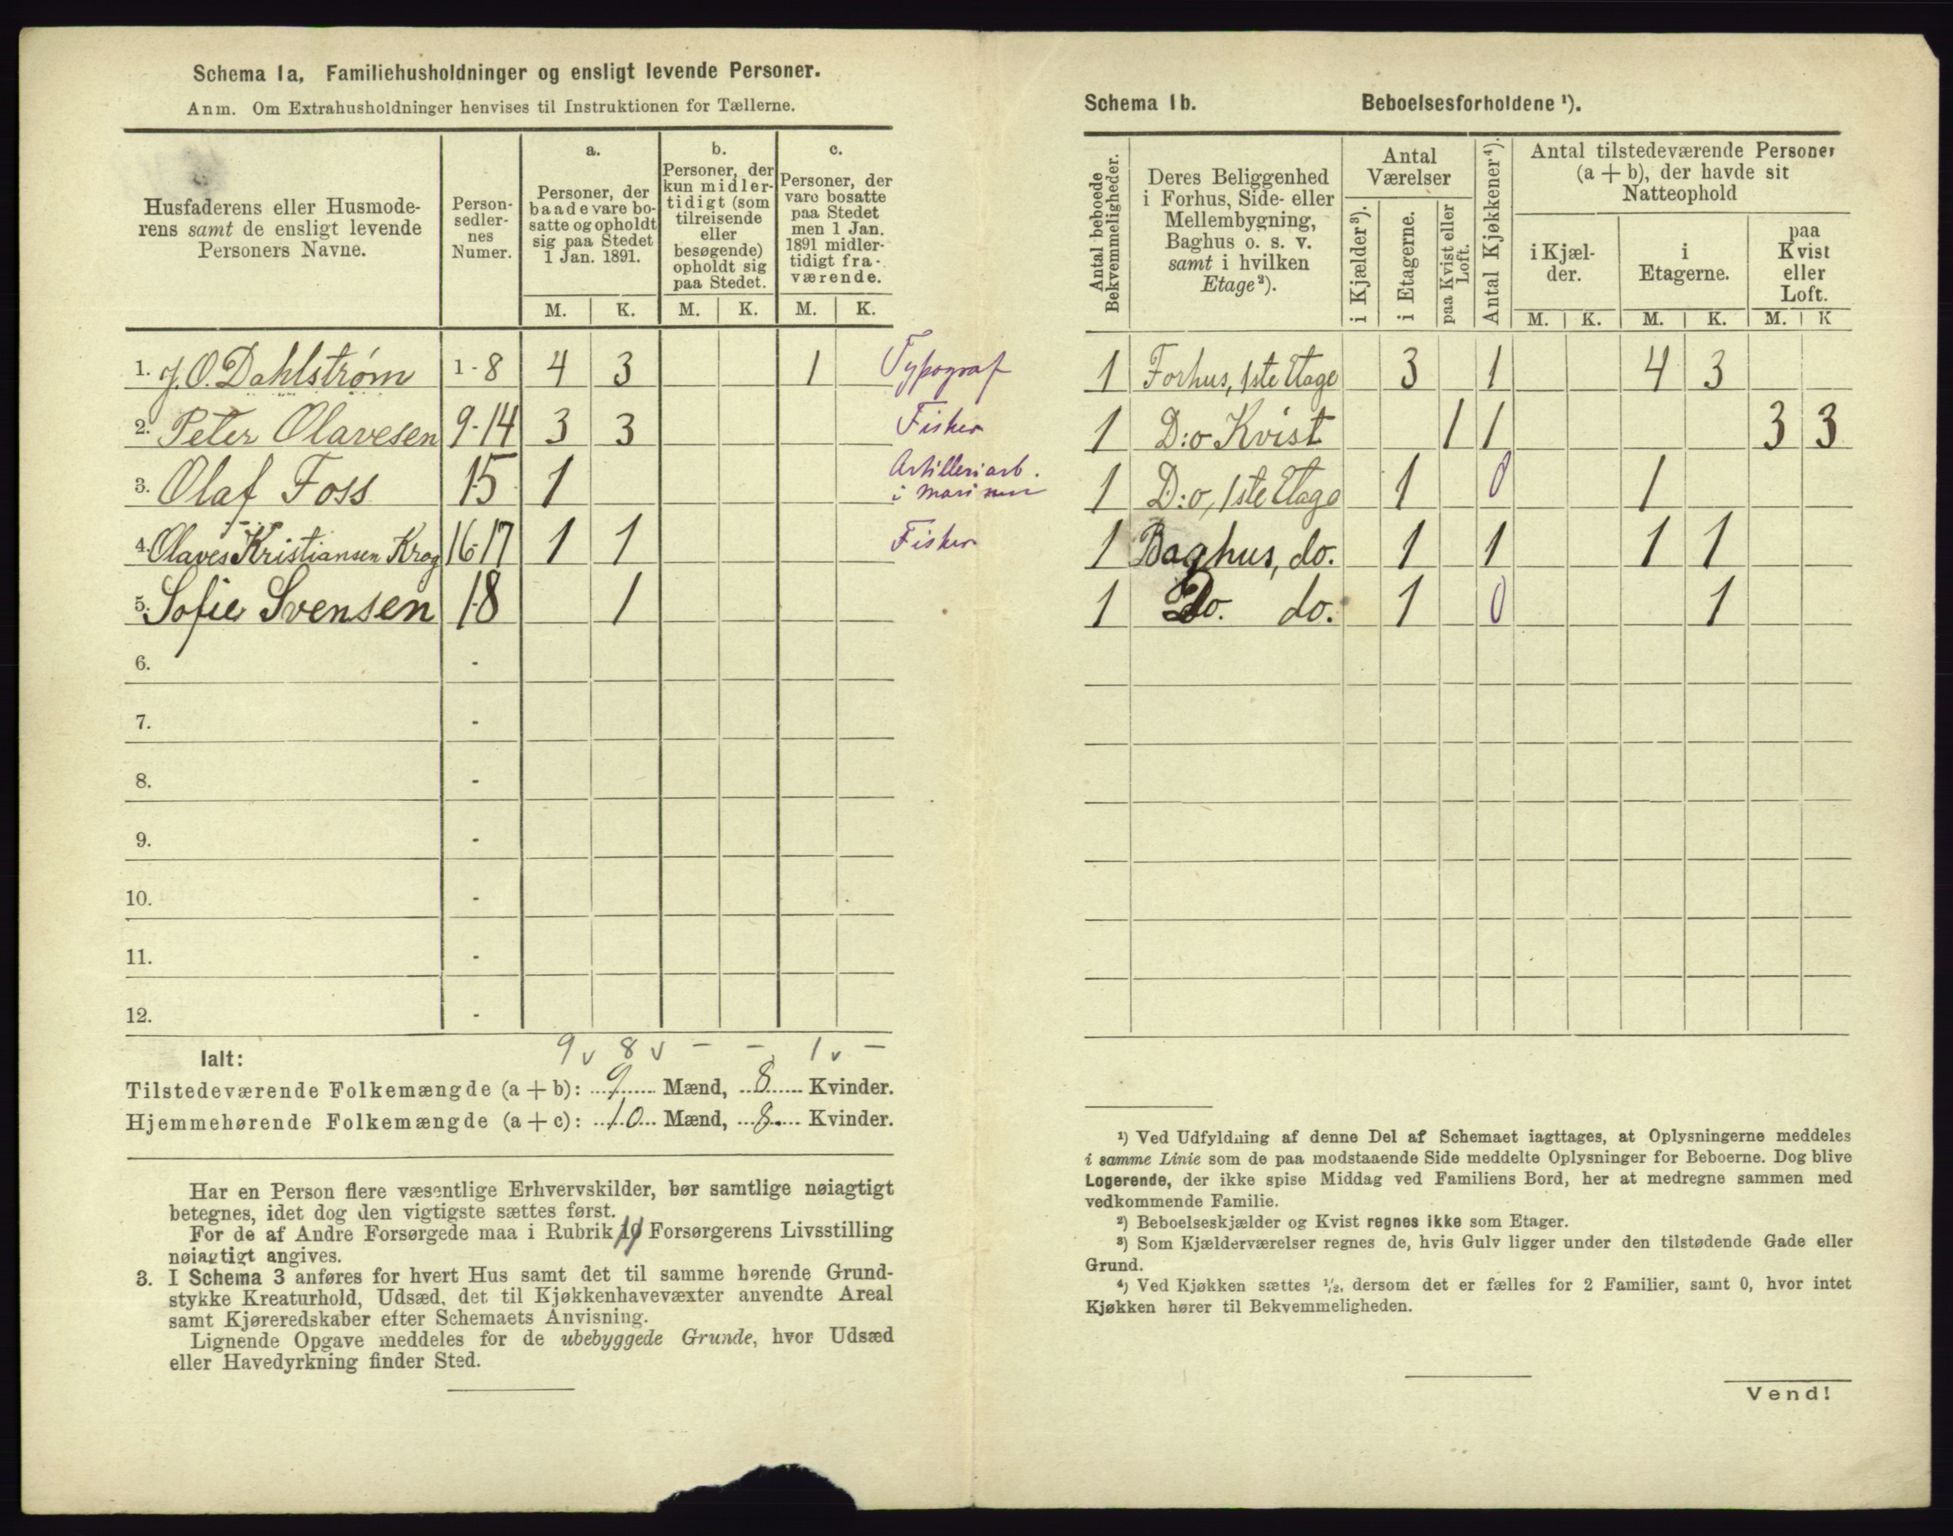 Schema 1a, Familiehusholdninger og ensligt levende Personer.
Anm. Om Extrahusholdninger henvises til Instruktionen for Tællerne.
Husfaderens eller Husmoderens samt de ensligt levende Personers Navne.
Personsedlernes Numer.
a. Personer, der baade vare bosatte og opholdt sig paa Stedet 1 Jan. 1891.
b. Personer, der kun midlertidigt (som tilreisende eller besøgende) opholdt sig paa Stedet.
c. Personer, der vare bosatte paa Stedet men 1 Jan. 1891 midlertidigt fraværende.
M. K. M. K. M. K.
1. J. O. Dahlstrøm 1-8 4 3 1 Typograf
2. Peter Olavesen 9-14 3 3 Fisker
3. Olaf Foss 15 1 Artilleriarb. i marinen
4. Olaves Kristiansen Krog 16-17 1 1 Fisker
5. Sofie Svensen 18 1
6. -
7. -
8. -
9. -
10. -
11. -
12. -
Ialt: 9 v 8 v - - 1 v -
Tilstedeværende Folkemængde (a + b): 9 Mænd, 8 Kvinder.
Hjemmehørende Folkemængde (a + c): 10 Mænd, 8 Kvinder.
Har en Person flere væsentlige Erhvervskilder, bør samtlige nøiagtigt
betegnes, idet dog den vigtigste sættes først.
For de af Andre Forsørgede maa i Rubrik 11 Forsørgerens Livsstilling
nøiagtigt angives.
3. I Schema 3 anføres for hvert Hus samt det til samme hørende Grund-
stykke Kreaturhold, Udsæd, det til Kjøkkenhavevæxter anvendte Areal
samt Kjøreredskaber efter Schemaets Anvisning.
Lignende Opgave meddeles for de ubebyggede Grunde, hvor Udsæd
eller Havedyrkning finder Sted.
Schema 1b. Beboelsesforholdene ¹).
Antal beboede Bekvemmeligheder.
Deres Beliggenhed i Forhus, Side- eller Mellembygning, Baghus o. s. v. samt i hvilken Etage²).
Antal Værelser
i Kjælder³). i Etagerne. paa Kvist eller Loft.
Antal Kjøkkener⁴).
Antal tilstedeværende Personer (a + b), der havde sit Natteophold
i Kjælder. i Etagerne. paa Kvist eller Loft.
M. K. M. K. M. K
1 Forhus, 1ste Etage 3 1 4 3
1 D:o Kvist 1 1 3 3
1 D:o, 1ste Etage 1 0 1
1 Baghus, do. 1 1 1 1
1 Do. do. 1 0 1
¹) Ved Udfyldning af denne Del af Schemaet iagttages, at Oplysningerne meddeles
i samme Linie som de paa modstaaende Side meddelte Oplysninger for Beboerne. Dog blive
Logerende, der ikke spise Middag ved Familiens Bord, her at medregne sammen med
vedkommende Familie.
²) Beboelseskjælder og Kvist regnes ikke som Etager.
³) Som Kjælderværelser regnes de, hvis Gulv ligger under den tilstødende Gade eller
Grund.
⁴) Ved Kjøkken sættes ½, dersom det er fælles for 2 Familier, samt 0, hvor intet
Kjøkken hører til Bekvemmeligheden.
Vend!